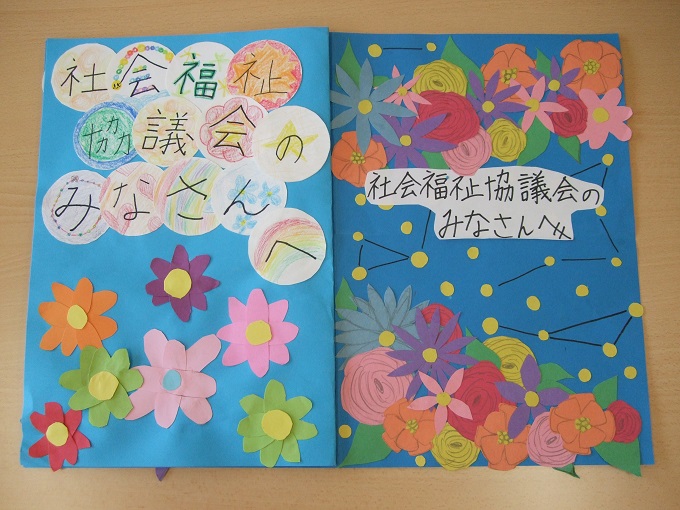 社会福祉
協議会の
みなさん
へ
社会福祉協議会の
みなさんへ